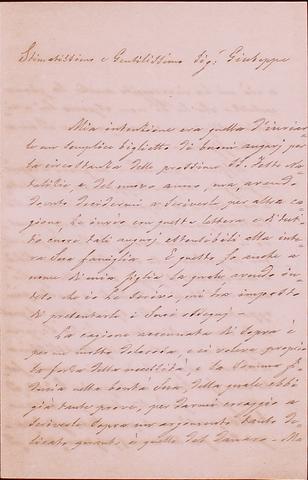 Stimatissimo e Gentilissimo Sigr Giuseppe
Mia intenzione era quella d'invia
le un semplice biglietto di buoni augurj per
la circostanza delle prossime SS. Feste
e del nuovo anno, ma avendo
dovuto decidermi a scriverle per altra ca
gione, le invio con questa lettera e di tut
to cuore tali augurj alla inte
ra Sua famiglia - E questo fo anche a
nome di mia figlia la quale avendo in
teso che io Le scrivo, mi ha imposto
di presentarle i Suoi ossequj -
La cagione accennata di sopra è
per me molto dolorosa, e ci voleva propio
la forza della necessità, e la somma fi
ducia nella bontà Sua, della quale ebbi
già tante prove, per darmi coraggio a
scriverle sopra un argomento tanto de
licato quanto è quello del danaro - Ma